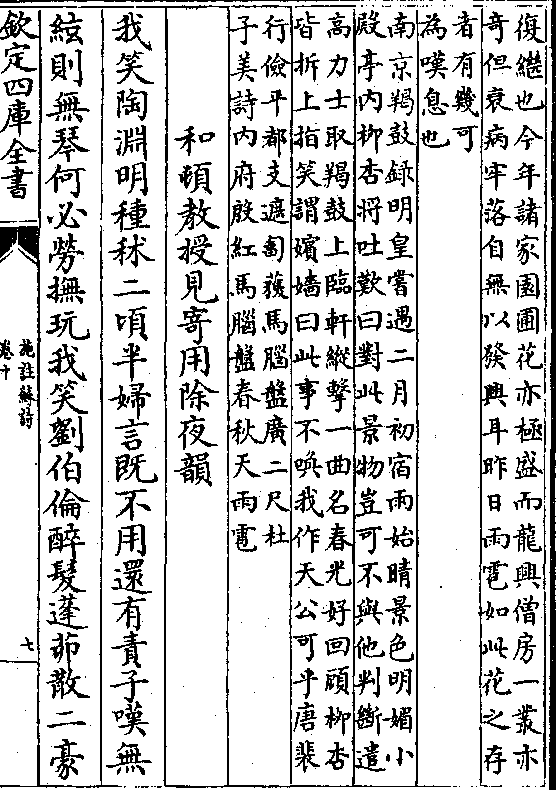 復繼也今年諸家園圃花亦極盛而龍興僧房一叢亦
奇但衰病牢落自無以發興耳昨日雨雹如此花之存
者有幾可
為嘆息也
南京羯鼓録明皇嘗遇二月初宿雨始晴景色明媚小
殿亭内柳杏將吐歎曰對此景物豈可不與他判斷遣
高力士取羯鼓上臨軒縱擊一曲名春光好回頭柳杏
皆拆上指笑謂嬪嬙曰此事不喚我作天公可乎唐裴
行儉平都支遮匐獲馬腦盤廣二尺杜
子美詩内府殷紅馬腦盤春秋天雨雹
和頓教授見寄用除夜韻
我笑陶淵明種秫二頃半婦言既不用還有責子嘆無
絃則無琴何必勞撫玩我笑劉伯倫醉髮蓬茆散二豪
欽定四庫全書
施註蘇詩
卷十
七